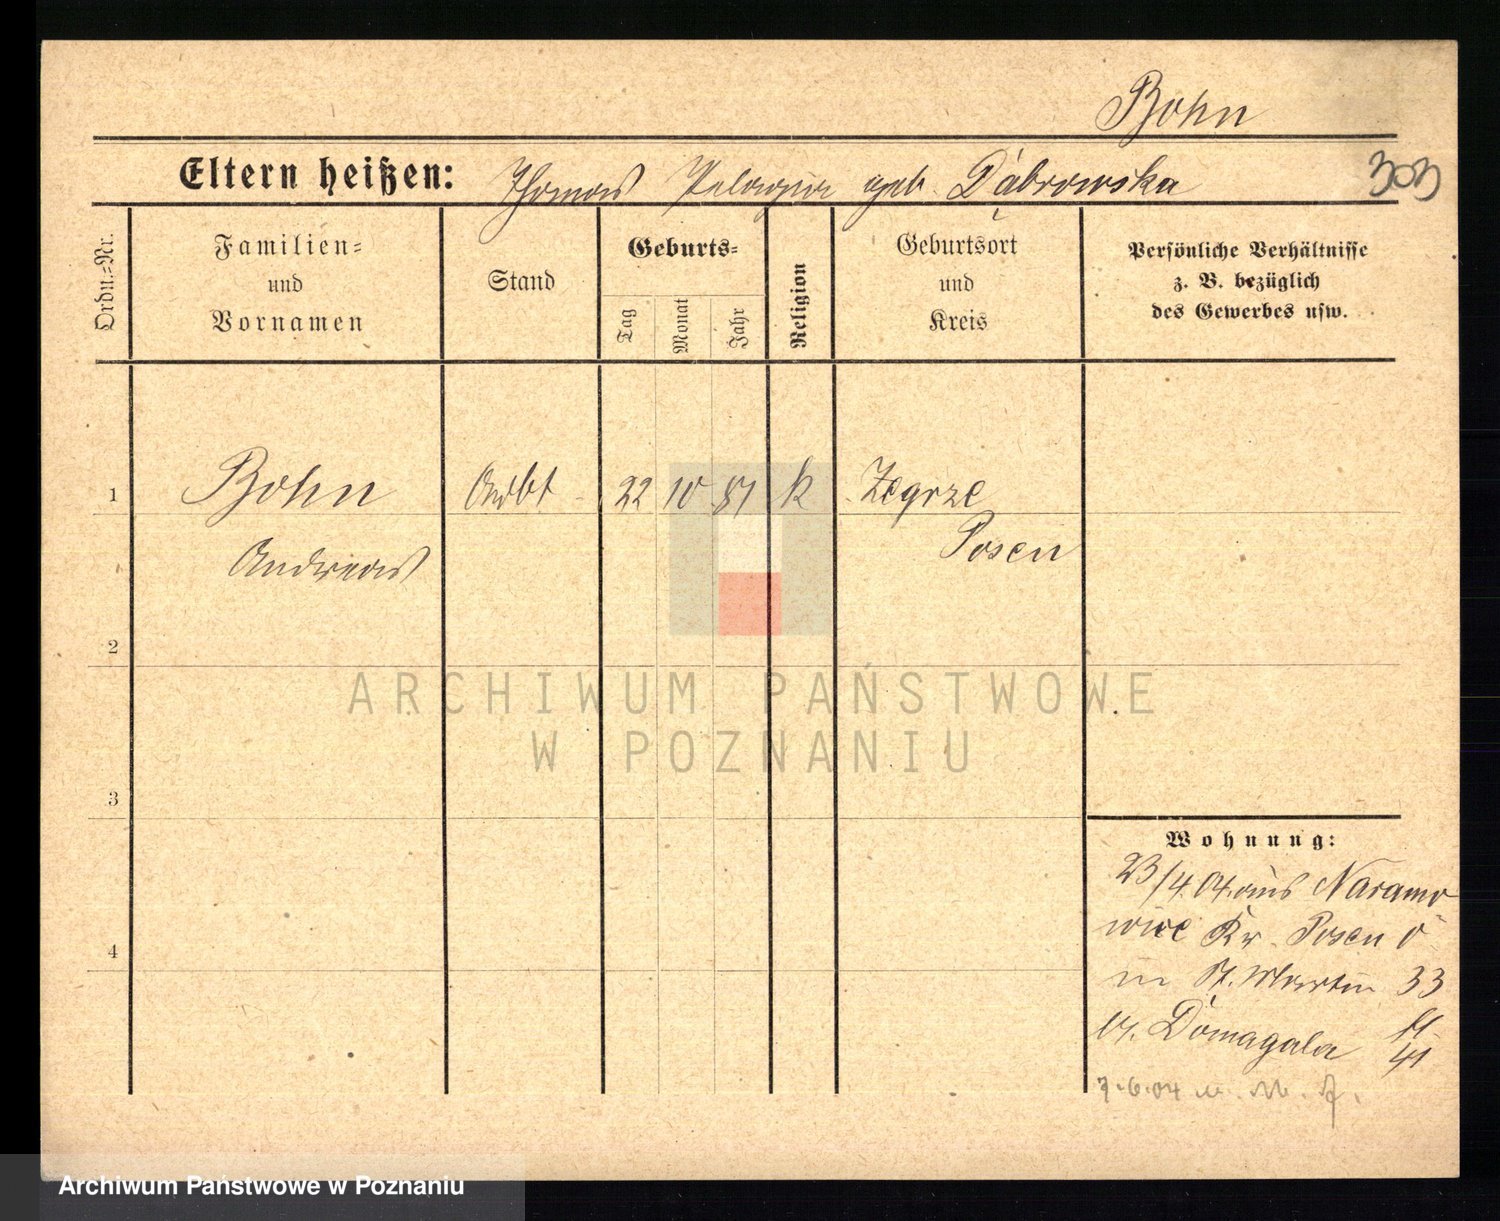 Bohn
303
Eltern heißen: Thomas Pelagia geb. Dabrowska
Ordn.=Nr.
Familien=
und
Vornamen
Stand
Geburts=
Tag
Monat
Jahr
Religion
Geburtsort
und
Kreis
Persönliche Verhältnisse
z. B. bezüglich
des Gewerbes usw.
1 Bohn Arbt 22 10 81 k Zegrze
Andreas Posen
2
3
4
ARCHIWUM PAŃSTWOWE
W POZNANIU
Wohnung:
23/4.04. aus Naramo
wice Kr. Posen O
in St. Martin 33
b. Domagala
41
7.6.04
Archiwum Państwowe w Poznaniu